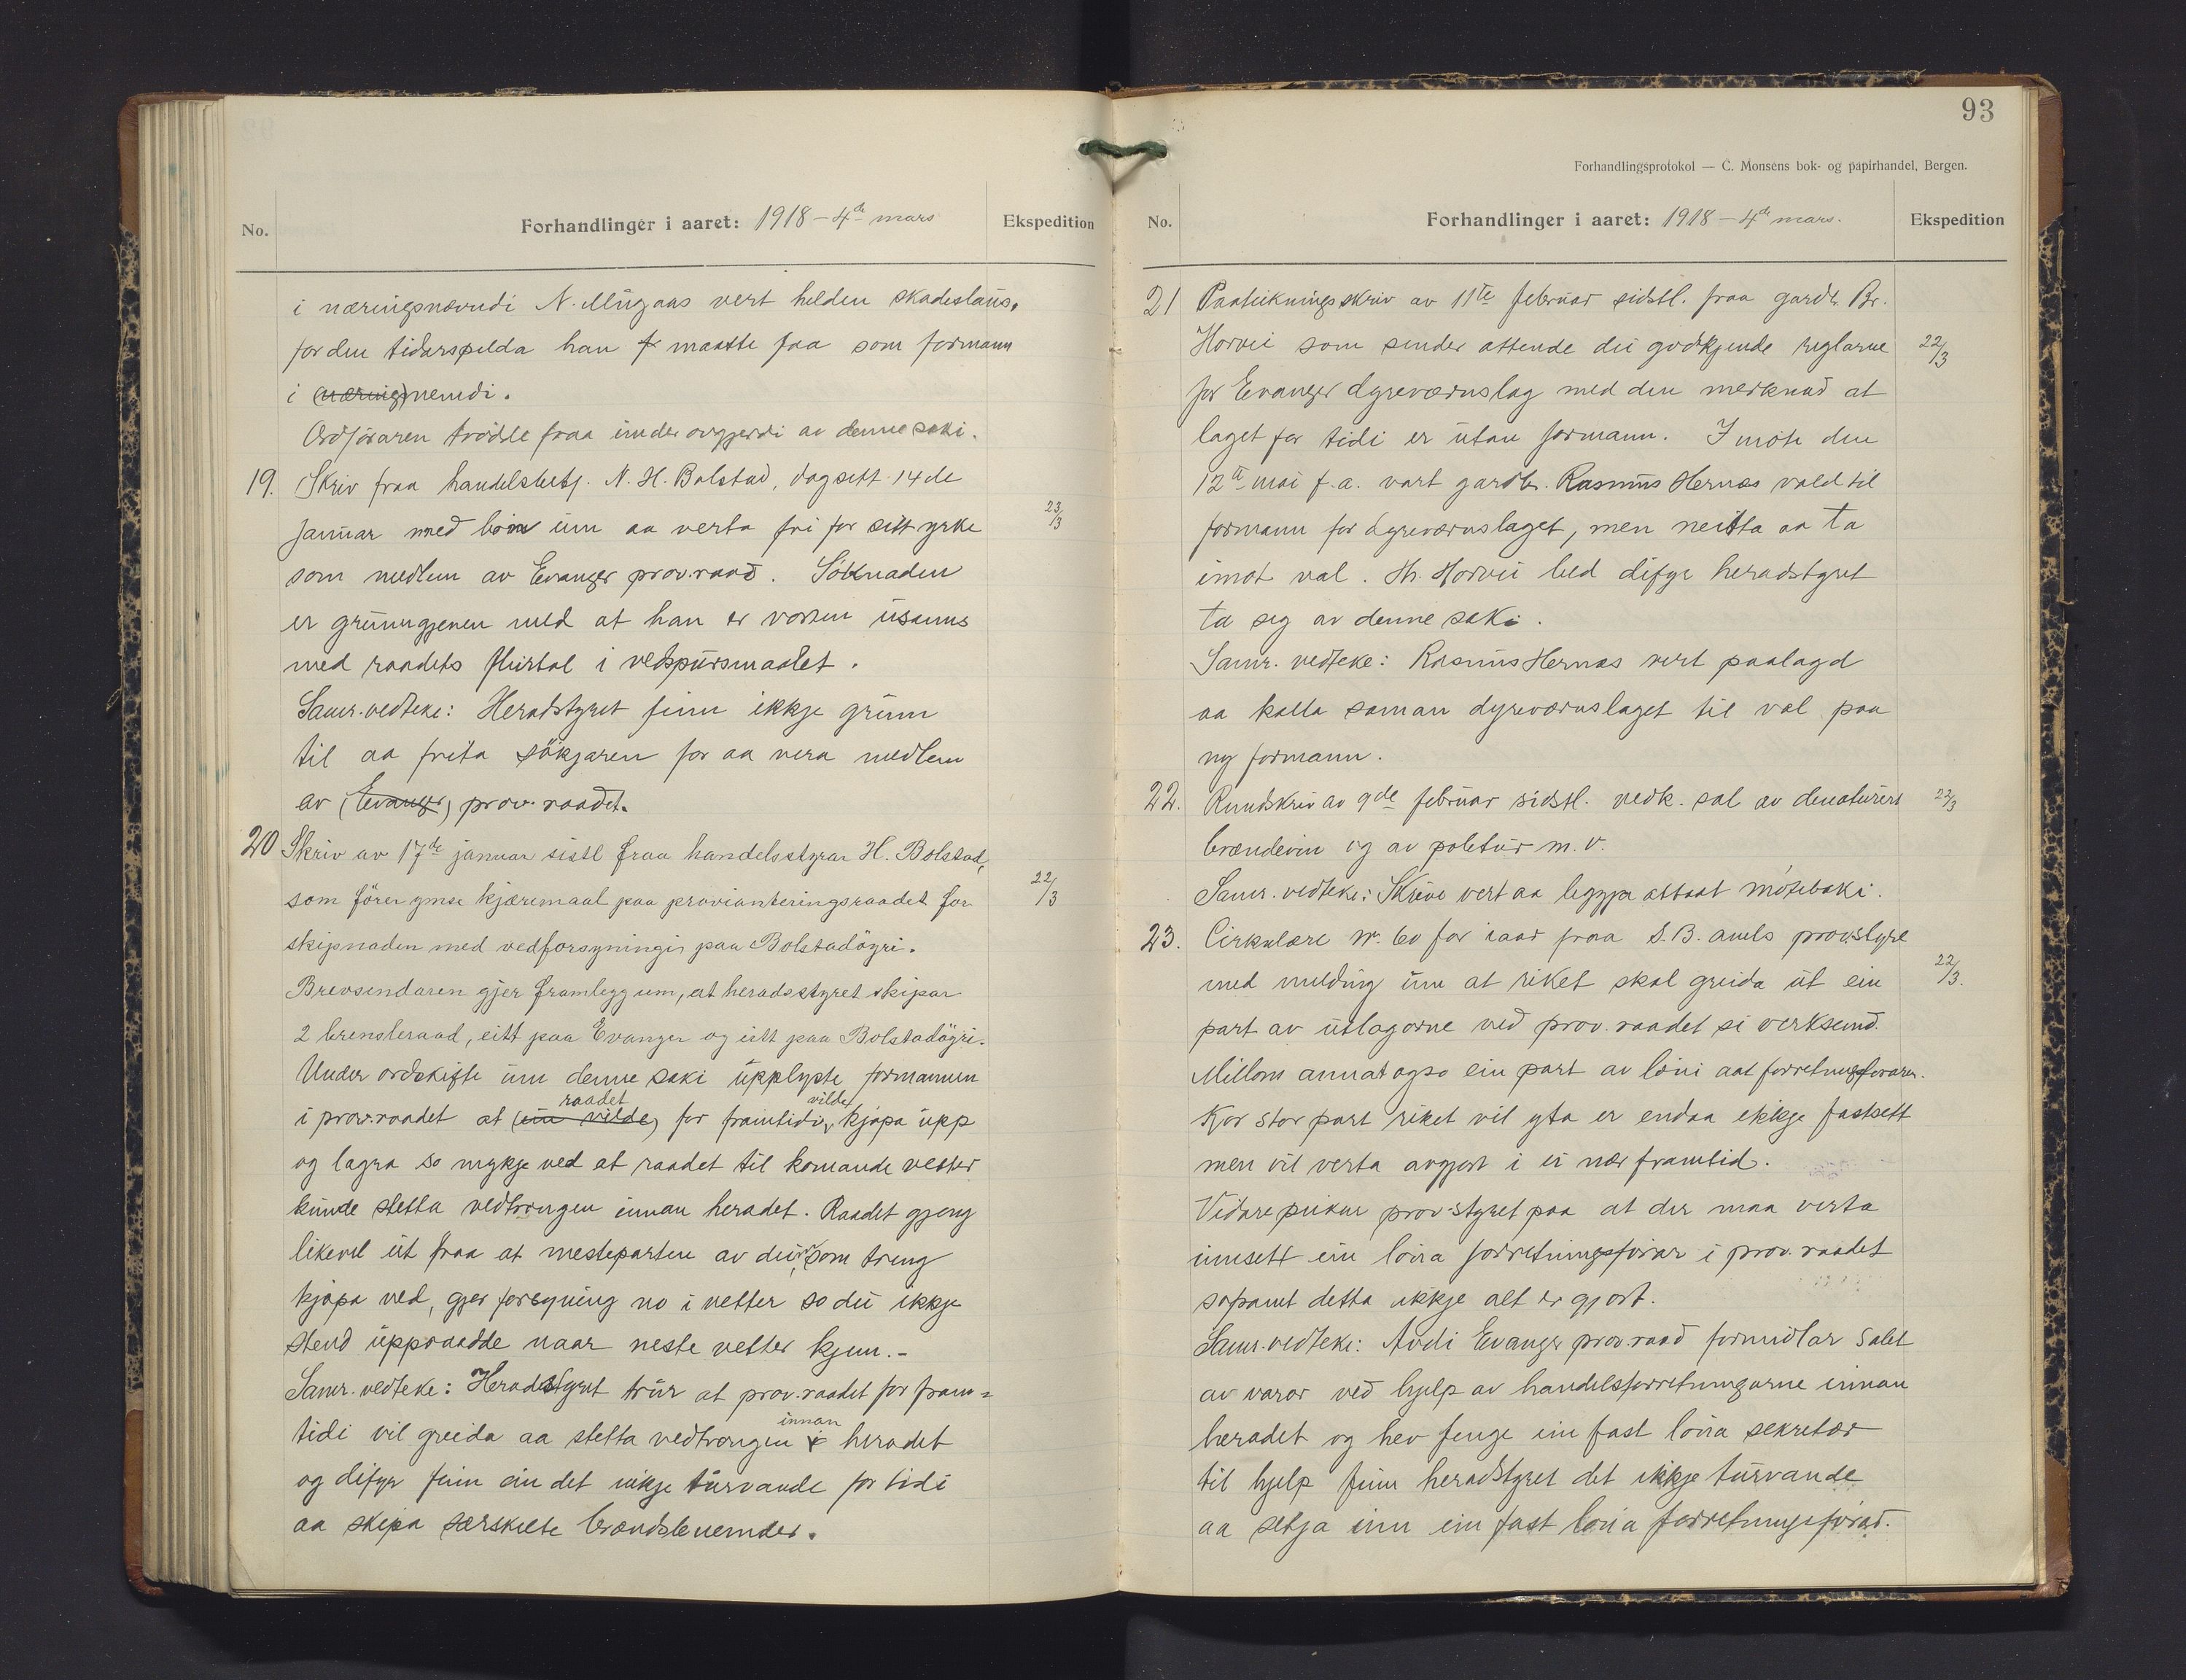 No. Forhandlinger i aaret: 1918 – 4de mars Ekspedition
i næringsnævndi N. Mugaas vert helden skadeslaus,
for den tidarspilda han fr maatte faa som formann
i (næring)nemdi.
Ordföraren trödde fraa under avgjerdi av denne saki.
19. Skriv fraa handelsbetj. N. H. Bolstad, dagsett 14de
januar med bön um aa verta fri for sitt yrke 23/3
som medlem av Evanger prov.raad. Söknaden
er grunngjeven med at han er vorten usams
med raadets fleirtal i vedspursmaalet.
Samr. vedteke: Heradstyret finn ikkje grunn
til aa frita sökjaren for aa vera medlem
av (Evanger) prov. raadet.
20 Skriv av 17de januar sistl fraa handelsstyrar H. Bolstad,
som förer ymse kjæremaal paa provianteringsraadet for 22/3
skipnaden med vedforsyningi paa Bolstadöyri.
Brevsendaren gjer framlegg um, at heradsstyret skipar
2 brensleraad, eitt paa Evanger og eitt paa Bolstadöyri.
Under ordskifte um denne saki upplyste formannen
i prov.raadet at (ein vilde) raadet for framtidi vilde kjöpa upp
og lagra so mykje ved at raadet til komande vetter
kunde stetta vedtrongen innan heradet. Raadet gjeng
likevel ut fraa at mesteparten av dei som treng
kjöpa ved, gjer forsyning no i vetter so dei ikkje
stend uppraadde naar neste vetter kjem. –
Samr. vedteke: Heradstyret trur at prov.raadet for fram=
tidi vil greida aa stetta vedtrongen i innan heradet
og difyr finn ein det ikkje turvande for tidi
aa skipa særskilte brændslenemder.
93
Forhandlingsprotokol — C. Monsens bok- og papirhandel, Bergen.
No. Forhandlinger i aaret: 1918 – 4de mars. Ekspedition
21 Paateikningsskriv av 11te februar sidstl. fraa gardbr. Br.
Horvei som sender attende dei godkjende reglarne 22/3
for Evanger dyreværnslag med den merknad at
laget for tidi er utan formann. I möte den
12te mai f.a. vart gardbr. Rasmus Hernæs vald til
formann for dyreværnslaget, men neitta aa ta
imot val. Hr. Horvei bed difyr heradstyret
ta seg av denne saki.
Samr. vedteke: Rasmus Hernæs vert paalagd
aa kalla saman dyreværnslaget til val paa
ny formann.
22. Rundskriv av 9de februar sidstl. vedk. sal av denaturert 22/3
brændevin og av politur m.v.
Samr. vedteke: Skrive vert aa leggja attaat mötebaki.
23. Cirkulære nr. 60 for iaar fraa S. B. amts prov.styre
med melding um at riket skal greida ut ein 22/3.
part av utlagorne ved prov. raadet si verksemd.
Millom annat ogso ein part av löni aat forretningsförarer.
Kor stor part riket vil yta er endaa ikkje fastsett
men vil verta avgjort i ei nær framtid.
Vidare peikar prov.styret paa at der maa verta
innsett ein löna forretningsförar i prov. raadet
soframt detta ikkje alt er gjort.
Samr. vedteke: Avdi Evanger prov.raad formidlar salet
av varor ved hjelp av handelsforretningarne innan
heradet og hev fenge ein fast löna sekretær
til hjelp finn heradstyret det ikkje turvande
aa setja inn ein fast löna forretningsförar.